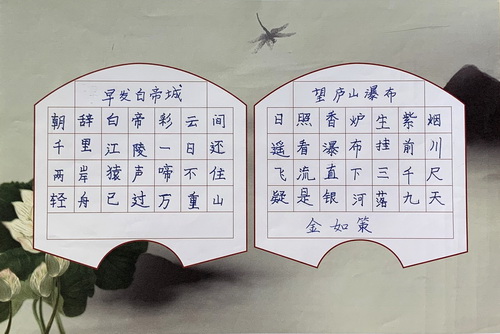 早发白帝城
朝辞白帝彩云间
千里江陵一日还
两岸猿声啼不住
轻舟已过万重山
望庐山瀑布
日照香炉生紫烟
遥看瀑布挂前川
飞流直下三千尺
疑是银河落九天
金如策